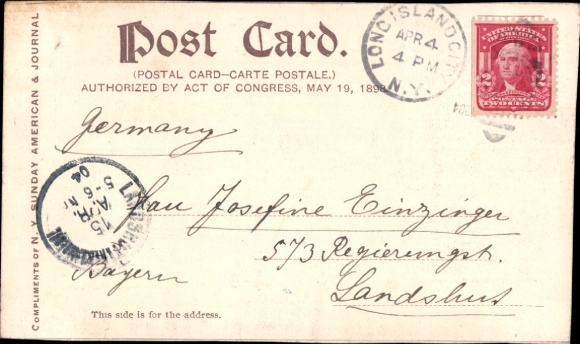 Post Card.
(POSTAL CARD—CARTE POSTALE.)
AUTHORIZED BY ACT OF CONGRESS, MAY 19, 1898
COMPLIMENTS OF N. Y. SUNDAY AMERICAN & JOURNAL
LONG ISLAND CITY
APR 4
4 PM
N.Y.
UNITED STATES OF AMERICA
2 2
POSTAGE
TWO CENTS
Germany
Frau Josefine Einzinger
573 Regierungst.
Landshut
Bayern
LANDSHUT
15
APR.
5-6
04
This side is for the address.